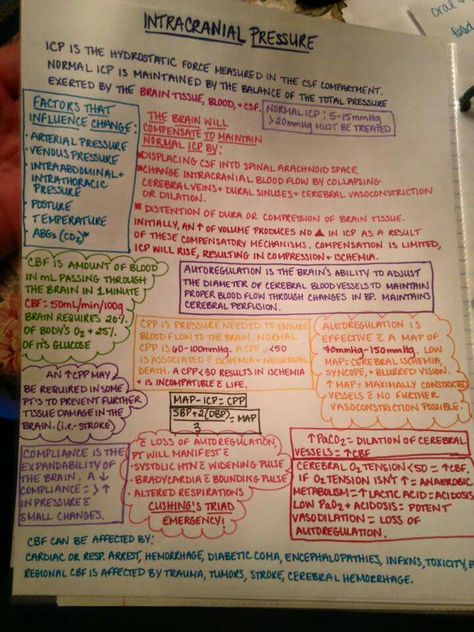 INTRACRANIAL PRESSURE
ICP IS THE HYDROSTATIC FORCE MEASURED IN THE CSF COMPARTMENT.
NORMAL ICP IS MAINTAINED BY THE BALANCE OF THE TOTAL PRESSURE
EXERTED BY THE BRAIN TISSUE, BLOOD, + CSF.
NORMAL ICP: 5-15mmHg
>20mmHg MUST BE TREATED
FACTORS THAT
INFLUENCE CHANGE:
• ARTERIAL PRESSURE
• VENOUS PRESSURE
• INTRAABDOMINAL +
INTRATHORACIC
PRESSURE
• POSTURE
• TEMPERATURE
• ABGs (CO₂)*
THE BRAIN WILL
COMPENSATE TO MAINTAIN
NORMAL ICP BY:
DISPLACING CSF INTO SPINAL ARACHNOID SPACE,
CHANGE INTRACRANIAL BLOOD FLOW BY COLLAPSING
CEREBRAL VEINS + DURAL SINUSES + CEREBRAL VASOCONSTRICTION
OR DILATION.
DISTENTION OF DURA OR COMPRESSION OF BRAIN TISSUE.
INITIALLY, AN ↑ OF VOLUME PRODUCES NO ▲ IN ICP AS A RESULT
OF THESE COMPENSATORY MECHANISMS. COMPENSATION IS LIMITED,
ICP WILL RISE, RESULTING IN COMPRESSION + ISCHEMIA.
CBF IS AMOUNT OF BLOOD
IN mL PASSING THROUGH
THE BRAIN IN 1 MINUTE
CBF = 50mL/min/100g
BRAIN REQUIRES 20%
OF BODY'S O₂ + 25%
OF IT'S GLUCOSE
AUTOREGULATION IS THE BRAIN'S ABILITY TO ADJUST
THE DIAMETER OF CEREBRAL BLOOD VESSELS TO MAINTAIN
PROPER BLOOD FLOW THROUGH CHANGES IN BP. MAINTAINS
CEREBRAL PERFUSION.
CPP IS PRESSURE NEEDED TO ENSURE
BLOOD FLOW TO THE BRAIN. NORMAL
CPP IS 60-100mmHg. A CPP <50
IS ASSOCIATED c̄ ISCHEMIA + NEURONAL
DEATH. A CPP <30 RESULTS IN ISCHEMIA
+ IS INCOMPATIBLE c̄ LIFE.
AUTOREGULATION IS
EFFECTIVE c̄ A MAP OF
70mmHg-150mmHg. LOW
MAP= CEREBRAL ISCHEMIA,
SYNCOPE, + BLURRED VISION.
↑ MAP= MAXIMALLY CONSTRICTED
VESSELS c̄ NO FURTHER
VASOCONSTRICTION POSSIBLE.
AN ↑ CPP MAY
BE REQUIRED IN SOME
PT'S TO PREVENT FURTHER
TISSUE DAMAGE IN THE
BRAIN. (i.e- STROKE)
MAP-ICP= CPP
SBP+2(DBP) = MAP
3
COMPLIANCE IS THE
EXPANDABILITY OF
THE BRAIN. A ↓
COMPLIANCE = > ↑
IN PRESSURE c̄
SMALL CHANGES.
c̄ LOSS OF AUTOREGULATION,
PT WILL MANIFEST c̄
• SYSTOLIC HTN c̄ WIDENING PULSE
• BRADYCARDIA c̄ BOUNDING PULSE
• ALTERED RESPIRATIONS
CUSHING'S TRIAD
EMERGENCY!
↑ PaCO₂= DILATION OF CEREBRAL
VESSELS = ↑CBF
CEREBRAL O₂ TENSION <50 = ↑CBF.
IF O₂ TENSION ISN'T ↑ = ANAEROBIC
METABOLISM = ↑ LACTIC ACID = ACIDOSIS
LOW PaO₂ + ACIDOSIS = POTENT
VASODILATION = LOSS OF
AUTOREGULATION.
CBF CAN BE AFFECTED BY:
CARDIAC OR RESP. ARREST, HEMORRHAGE, DIABETIC COMA, ENCEPHALOPATHIES, INFXNS, TOXICITY,
REGIONAL CBF IS AFFECTED BY TRAUMA, TUMORS, STROKE, CEREBRAL HEMORRHAGE.